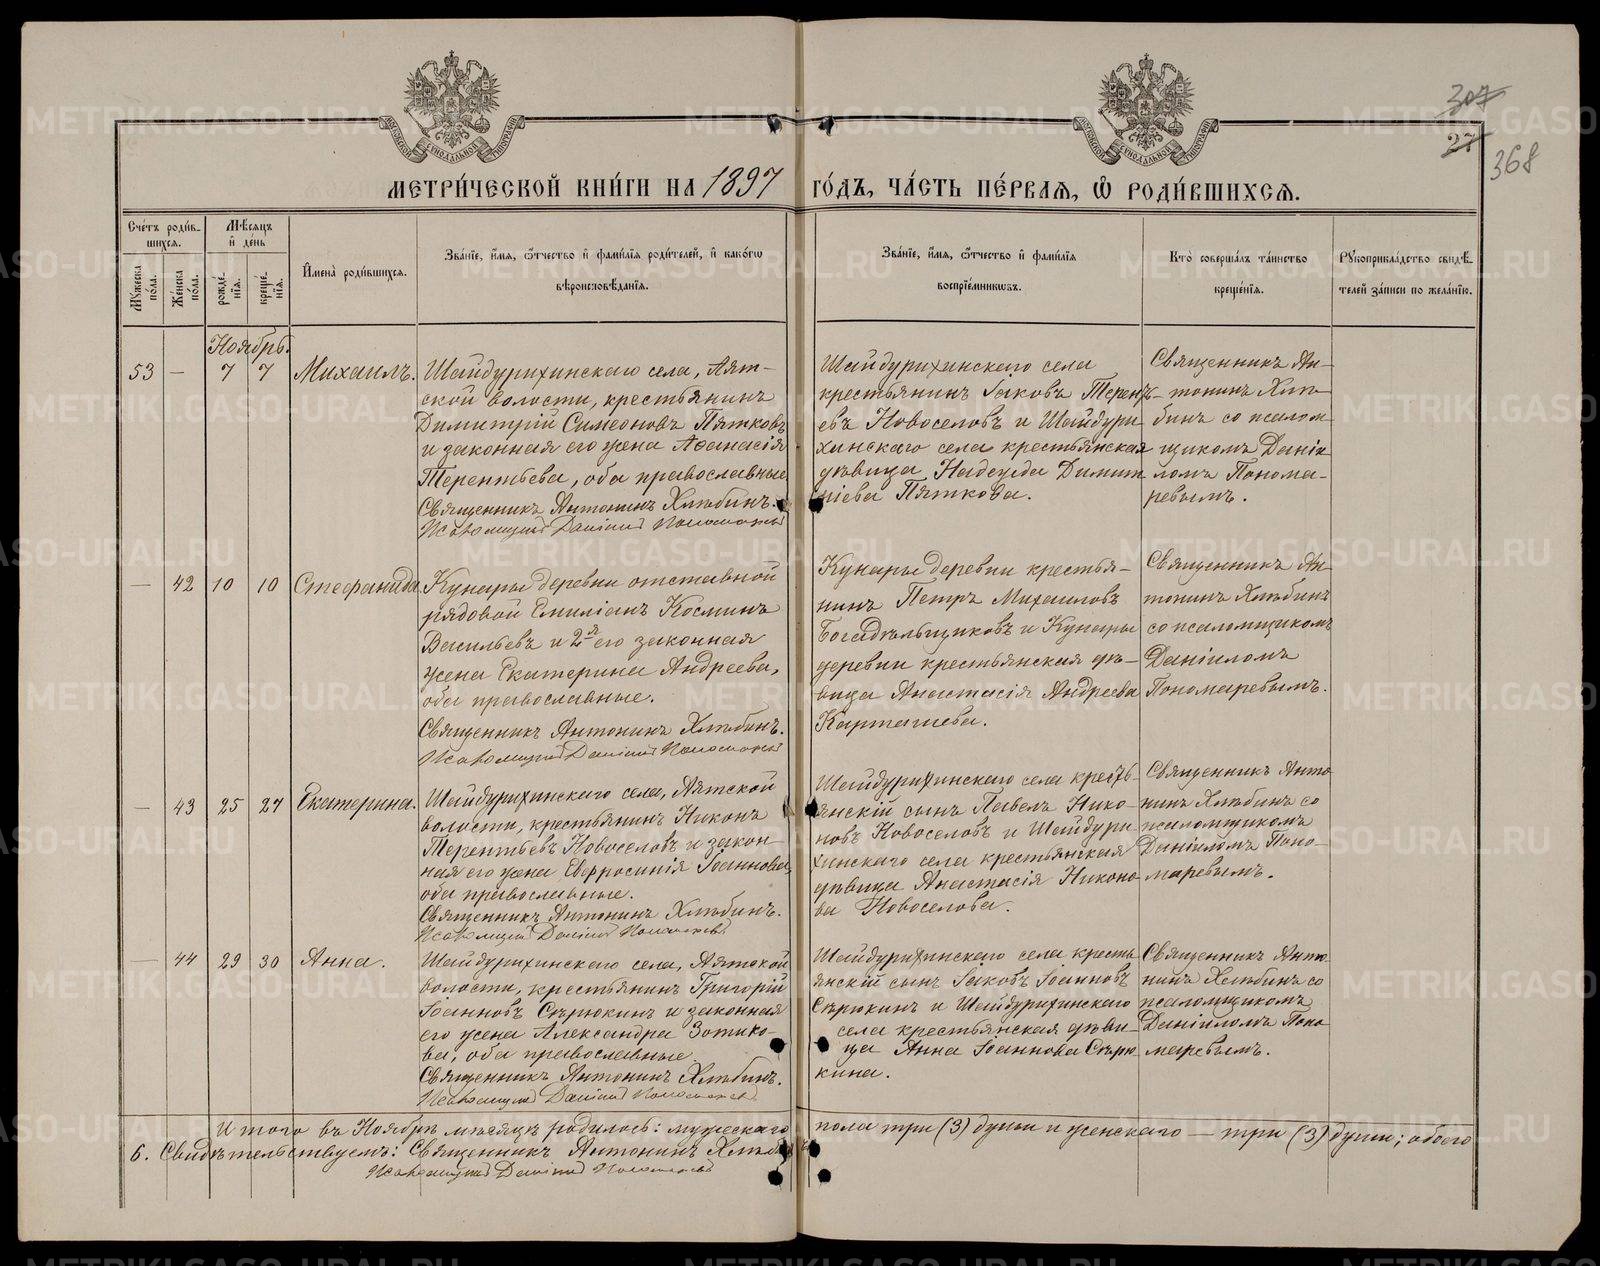 307
27
368
МЕТРИ́ЧЕСКОЙ КНИ́ГИ НА 1897 ГО́ДЪ, ЧА́СТЬ ПЕ́РВАѦ, Ѡ҆ РОДИ́ВШИХСѦ.
Сче́тъ роди́в-
шихсѧ.
Мꙋжеска по́ла.
Же́нска по́ла.
Мѣ́сѧцъ и҆ де́нь
рожде́-
нїѧ.
креще́-
нїѧ.
И҆мена̀ роди́вшихсѧ.
Зва́нїе, и҆́мѧ, ѻ҆́тчество и҆ фами́лїѧ роди́телей, и҆ како́гѡ
вѣроисповѣ́данїѧ.
Зва́нїе, и҆́мѧ, ѻ҆́тчество и҆ фами́лїѧ
воспрїе́мникѡвъ.
Кто̀ соверша́лъ та́инство
креще́нїѧ.
Рꙋкоприкла́дство свидѣ́-
телей за́писи по жела́нїю.
Ноябрь.
53 — 7 7 Михаилъ.
Шайдурихинскаго села, Аят-
ской волости, крестьянинъ
Димитрій Симеоновъ Пятковъ
и законная его жена Аѳанасія
Терентьева, оба православные
Священникъ Антонинъ Хлѣбинъ.
Псаломщикъ Даніилъ Пономаревъ
Шайдурихинскаго села
крестьянинъ Іаковъ Терентъ-
евъ Новоселовъ и Шайдури
хинскаго села крестьянская
дѣвица Надежда Димит
ріева Пяткова.
Священникъ Ан-
тонинъ Хлѣ-
бинъ со псалом
щикомъ Даніи
ломъ Понома-
ревымъ.
— 42 10 10 Стефанида
Кунары деревни отставной
рядовой Емиліанъ Косминъ
Васильевъ и 2-я его законная
жена Екатерина Андреева,
оба православные.
Священникъ Антонинъ Хлѣбинъ.
Псаломщикъ Даніилъ Пономаревъ
Кунары деревни крестья-
нинъ Петръ Михаиловъ
Богадѣльщиковъ и Кунары
деревни крестьянская дѣ-
вица Анастасія Андреева
Карташева.
Священникъ Ан-
тонинъ Хлѣбинъ
со псаломщикомъ
Даніиломъ
Пономаревымъ.
— 43 25 27 Екатерина.
Шайдурихинскаго села, Аятской
волости, крестьянинъ Никонъ
Терентьевъ Новоселовъ и закон-
ная его жена Евфросинія Іоаннова,
оба православные.
Священникъ Антонинъ Хлѣбинъ.
Псаломщикъ Даніилъ Пономаревъ
Шайдурихинскаго села кресть-
янскій сынъ Павелъ Нико-
новъ Новоселовъ и Шайдури
хинскаго села крестьянская
дѣвица Анастасія Никоно
ва Новоселова.
Священникъ Анто
нинъ Хлѣбинъ со
псаломщикомъ
Даніиломъ Поно-
маревымъ.
— 44 29 30 Анна.
Шайдурихинскаго села, Аятской
волости, крестьянинъ Григорій
Іоанновъ Сѣрюкинъ и законная
его жена Александра Зотико-
ва, оба православные.
Священникъ Антонинъ Хлѣбинъ.
Псаломщикъ Даніилъ Пономаревъ
Шайдурихинскаго села кресть
янскій сынъ Іаковъ Іоанновъ
Сѣрюкинъ и Шайдурихинскаго
села крестьянская дѣви
ца Анна Іоаннова Сѣрю
кина.
Священникъ Анто
нинъ Хлѣбинъ со
псаломщикомъ
Даніиломъ Поно
маревымъ.
Итого въ Ноябрѣ мѣсяцѣ родилось: мужескаго пола три (3) души и женскаго — три (3) души; обоего
6. Свидѣтельствуемъ: Священникъ Антонинъ Хлѣбинъ
Псаломщикъ Даніилъ Пономаревъ